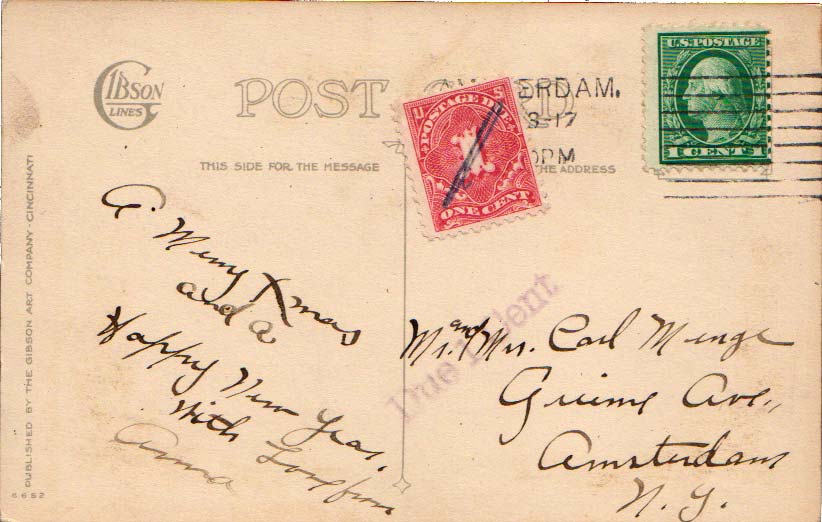 GIBSON
LINES
POST CARD
THIS SIDE FOR THE MESSAGE
THE ADDRESS
U.S. POSTAGE
1 CENT 1
U S
POSTAGE DUE
1
ONE CENT
ERDAM.
8-17
0PM
Due 1 Cent
A Merry Xmas
and a
Happy New Year,
With Love from
Anna
Mr. and Mrs. Carl Menge
Ave.,
Amsterdam
N. Y.
PUBLISHED BY THE GIBSON ART COMPANY - CINCINNATI
6652